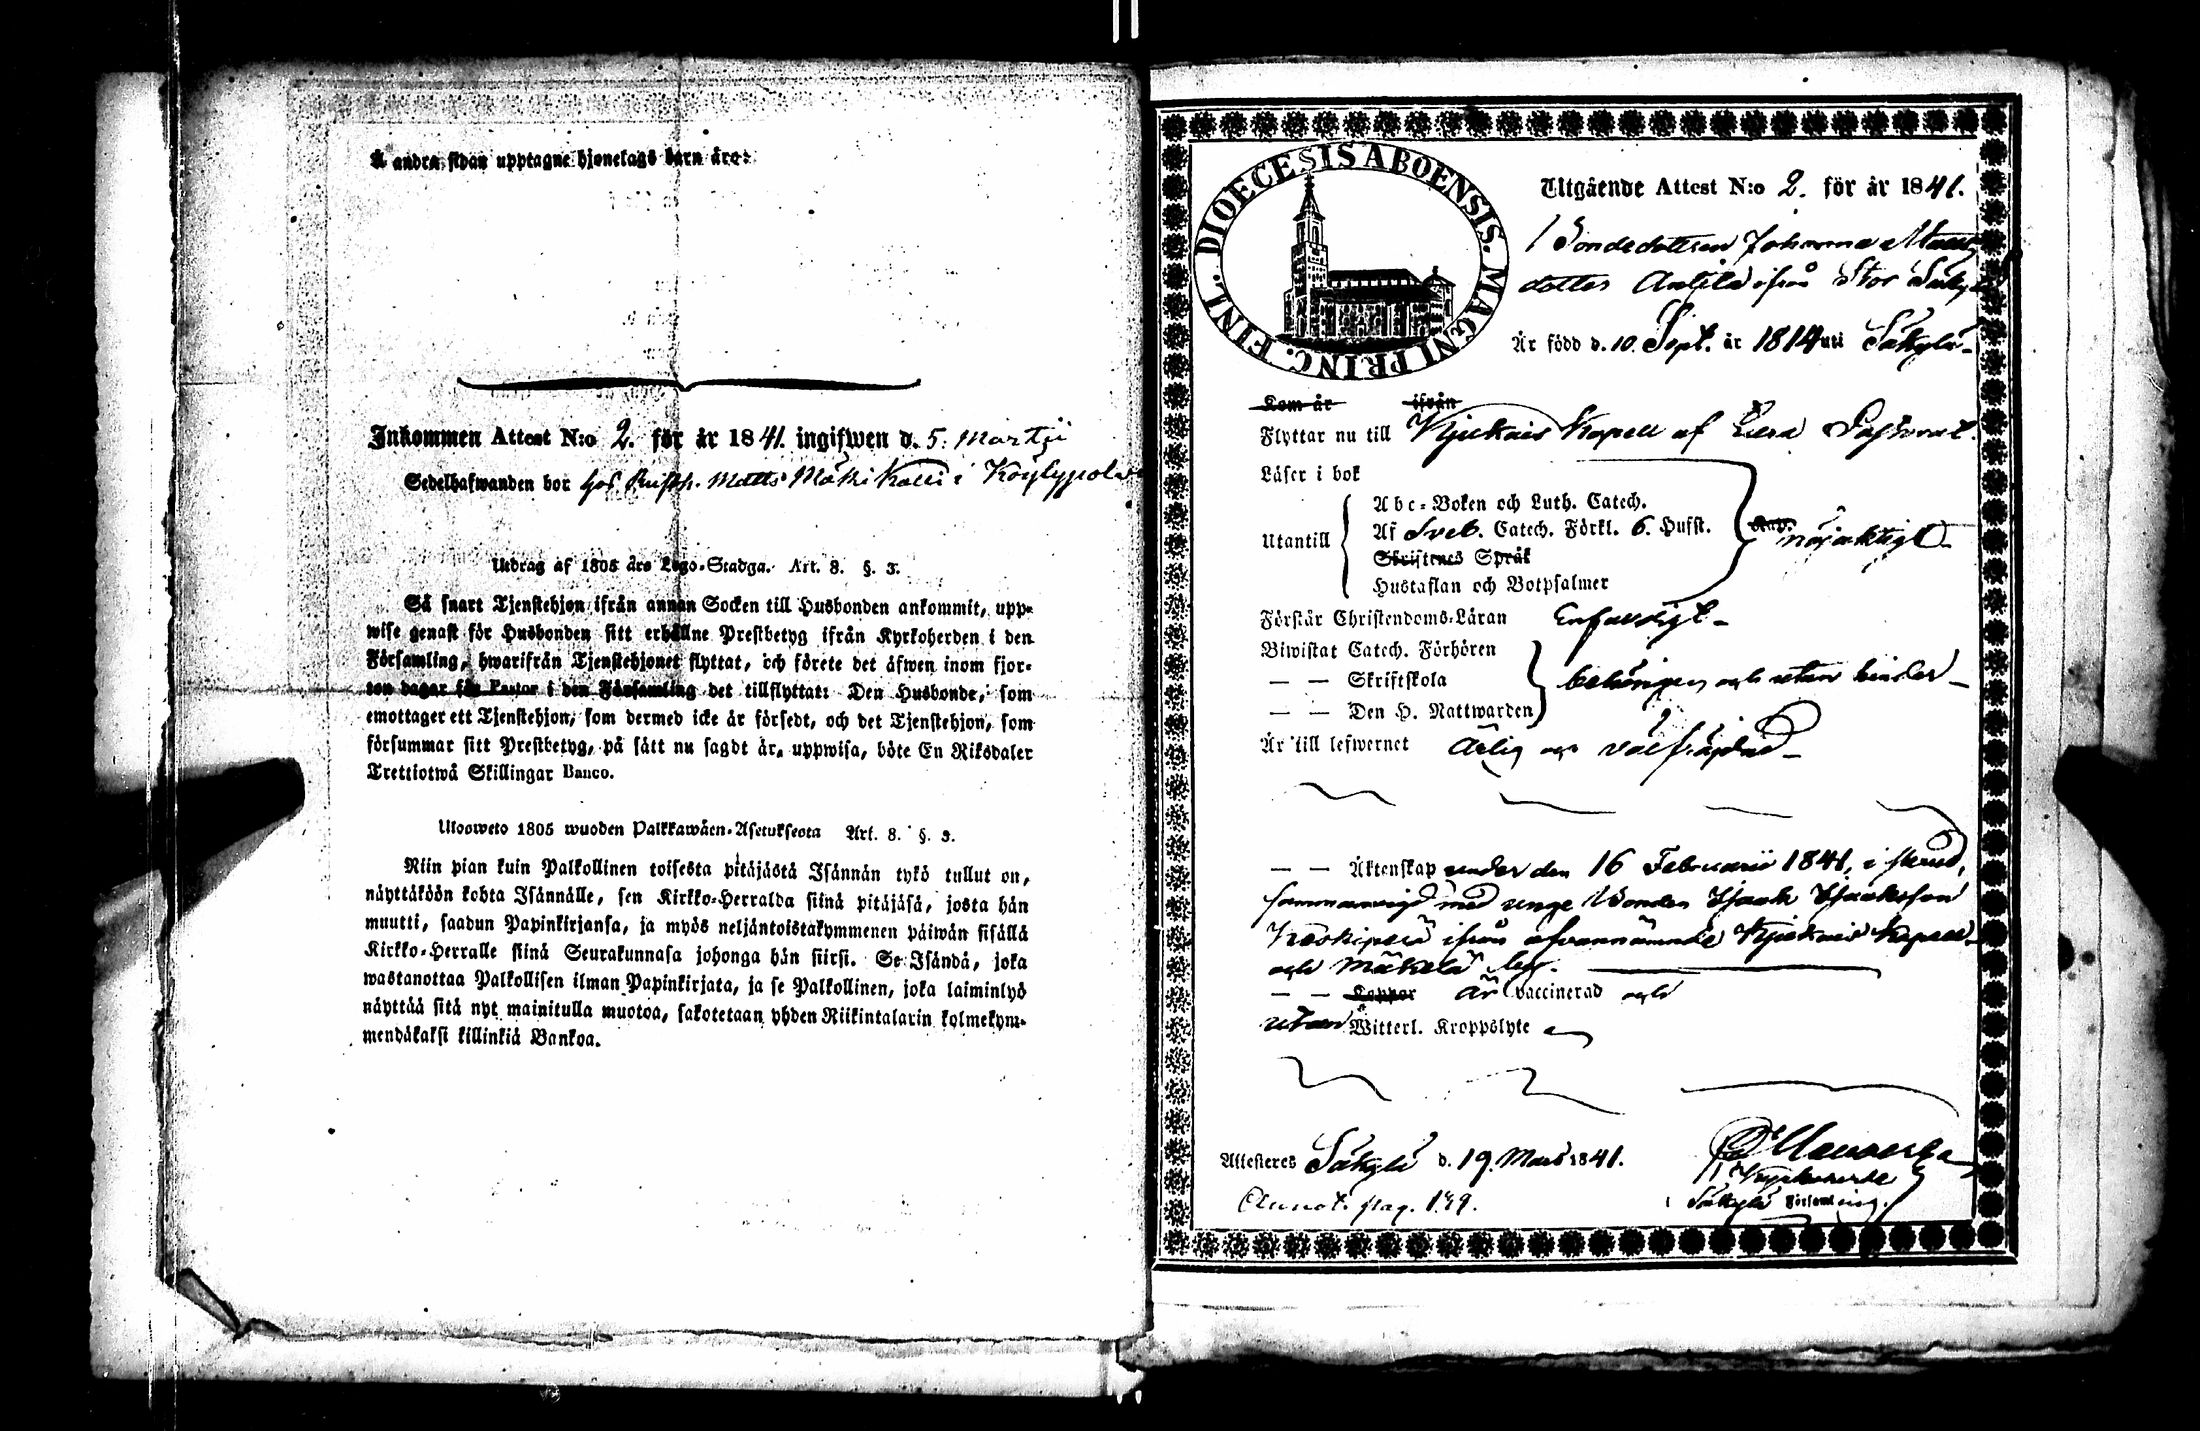 Å andra sidan upptagne hjonelags barn äro:
Inkommen Attest N:o 2. för år 1841. ingifwen d. 5. Martji
Sedelhafwanden bor hos Matts i
Utdrag af 1805 års Lego-Stadga. Art. 8. §. 3.
Så snart Tjenstehjon ifrån annan Socken till Husbonden ankommit, upp-
wise genast för Husbonden sitt erhållne Prestbetyg ifrån Kyrkoherden i den
Församling, hwarifrån Tjenstehjonet flyttat, och förete det äfwen inom fjor-
ton dagar för Pastor i den Församling det tillflyttat: Den Husbonde, som
emottager ett Tjenstehjon, som dermed icke är försedt, och det Tjenstehjon, som
försummar sitt Prestbetyg, på sätt nu sagdt är, uppwisa, böte En Riksdaler
Trettiotwå Skillingar Banco.
Ulosweto 1805 wuoden Palkkawäen-Asetuksesta Art. 8. §. 3.
Niin pian kuin Palkollinen toisesta pitäjästä Isännän tykö tullut on,
näyttäköön kohta Isännälle, sen Kirkko-Herralda siinä pitäjäsä, josta hän
muutti, saadun Papinkirjansa, ja myös neljäntoistakymmenen päiwän sisällä
Kirkko-Herralle siinä Seurakunnasa johonga hän siirsi. Se Isändä, joka
wastanottaa Palkollisen ilman Papinkirjata, ja se Palkollinen, joka laiminlyö
näyttää sitä nyt mainitulla muotoa, sakotetaan yhden Riikintalarin kolmekym-
mendäkaksi killinkiä Bankoa.
DIOECESIS ABOENSIS. MAGNI PRINC. FINL.
Utgående Attest N:o 2. för år 1841.
Bondedottren Johanna Matts
dotter Antila ifrån Stor Säkylä
Är född d. 10. Sept. år 1814 uti Säkylä
Kom år ifrån
Flyttar nu till Kjukais Kapell af Eura Pastorat.
Läser i bok
Abc-Boken och Luth. Catech.
Utantill Af Sveb. Catech. Förkl. 6. Hufst. Kap. nöjaktigt
Skriftenes Språk
Hustaflan och Botpsalmer
Förstår Christendoms-Läran Enfaldigt
Biwistat Catech. Förhören
— — Skriftskola behörigen och utan hinder
— — Den H. Nattwarden
Är till lefwernet Ärlig och välfrägdad
— — Äktenskap under den 16 Februarii 1841, i
sammanvigd med unge Bonden Isaak Isaaksson
Köskiperä ifrån ofvannämnde Kjukais Kapell
och Mäkelä by.
— — Koppor Är vaccinerad och
utan Witterl. Kroppslyte
Attesteres Säkylä d. 19. Mars 1841.
Kyrkoherde
i Säkylä Församling.
Annot. pag. 139.